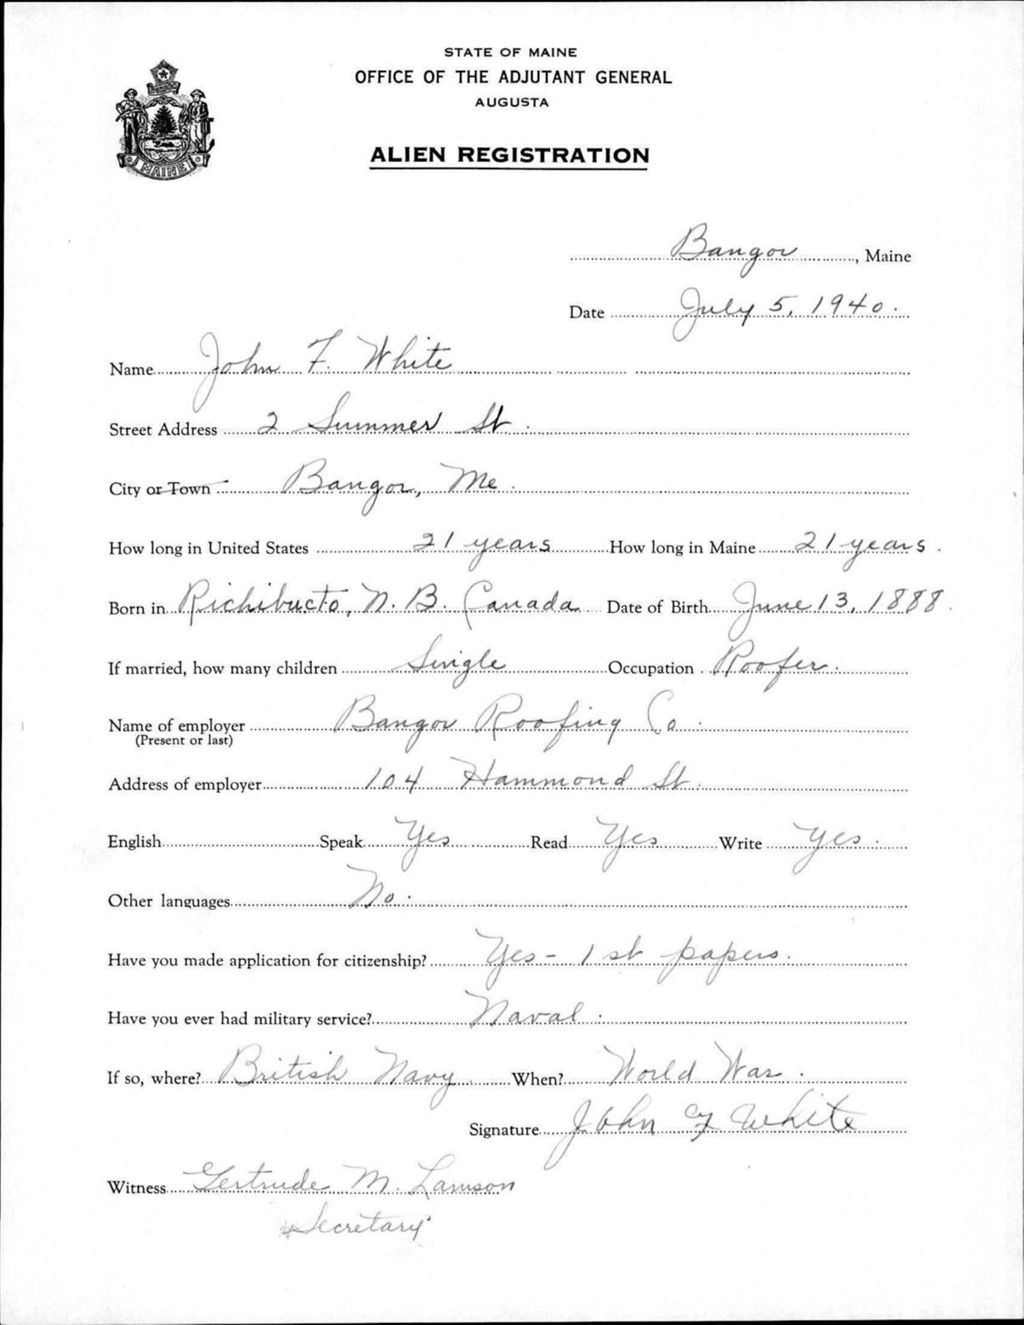 STATE OF MAINE
OFFICE OF THE ADJUTANT GENERAL
AUGUSTA
ALIEN REGISTRATION
MAINE
Bangor, Maine
Date July 5, 1940.
Name John F. White
Street Address 2 Summer St.
City or Town Bangor, Me.
How long in United States 21 years How long in Maine 21 years.
Born in Richibucto, N. B. Canada Date of Birth June 13, 1888.
If married, how many children Single Occupation Roofer.
Name of employer Bangor Roofing Co.
(Present or last)
Address of employer 104 Hammond St.
English Speak Yes Read Yes Write Yes.
Other languages No.
Have you made application for citizenship? Yes - 1st papers.
Have you ever had military service? Naval.
If so, where? British Navy When? World War.
Signature John F White
Witness Gertrude M. Lamson
Secretary